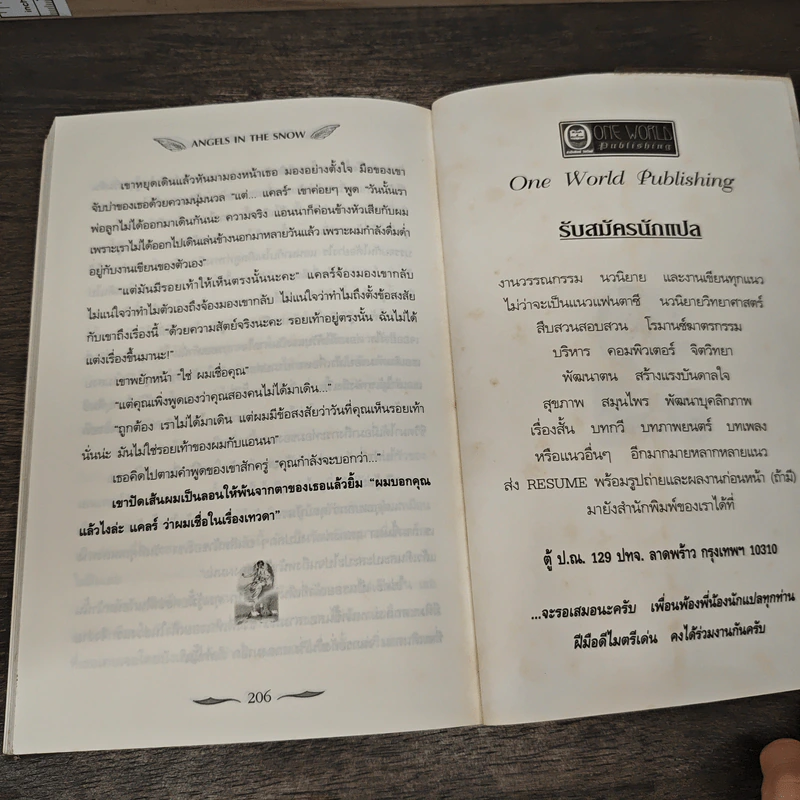 ANGELS IN THE SNOW
เขาหยุดเดินแล้วหันมามองหน้าเธอ มองอย่างตั้งใจ มือของเขา
จับบ่าของเธอด้วยความนุ่มนวล “แต่... แคลร์” เขาค่อยๆ พูด “วันนั้นเรา
พ่อลูกไม่ได้ออกมาเดินกันนะ ความจริง แอนนาก็ค่อนข้างหัวเสียกับผม
เพราะเราไม่ได้ออกไปเดินเล่นข้างนอกมาหลายวันแล้ว เพราะผมกำลังดื่มด่ำ
อยู่กับงานเขียนของตัวเอง”
“แต่มันมีรอยเท้าให้เห็นตรงนั้นนะคะ” แคลร์จ้องมองเขากลับ
ไม่แน่ใจว่าทำไมตัวเองถึงจ้องมองเขากลับ ไม่แน่ใจว่าทำไมถึงตั้งข้อสงสัย
กับเขาถึงเรื่องนี้ “ด้วยความสัตย์จริงนะคะ รอยเท้าอยู่ตรงนั้น ฉันไม่ได้
แต่งเรื่องขึ้นมานะ!”
เขาพยักหน้า “ใช่ ผมเชื่อคุณ”
“แต่คุณเพิ่งพูดเองว่าคุณสองคนไม่ได้มาเดิน...”
“ถูกต้อง เราไม่ได้มาเดิน แต่ผมมีข้อสงสัยว่าวันที่คุณเห็นรอยเท้า
นั่นน่ะ มันไม่ใช่รอยเท้าของผมกับแอนนา”
เธอคิดไปตามคำพูดของเขาสักครู่ “คุณกำลังจะบอกว่า...”
เขาปัดเส้นผมเป็นลอนให้พ้นจากตาของเธอแล้วยิ้ม “ผมบอกคุณ
แล้วไงล่ะ แคลร์ ว่าผมเชื่อในเรื่องเทวดา”
206
ONE WORLD
Publishing
One World Publishing
รับสมัครนักแปล
งานวรรณกรรม นวนิยาย และงานเขียนทุกแนว
ไม่ว่าจะเป็นแนวแฟนตาซี นวนิยายวิทยาศาสตร์
สืบสวนสอบสวน โรมานซ์ฆาตกรรม
บริหาร คอมพิวเตอร์ จิตวิทยา
พัฒนาตน สร้างแรงบันดาลใจ
สุขภาพ สมุนไพร พัฒนาบุคลิกภาพ
เรื่องสั้น บทกวี บทภาพยนตร์ บทเพลง
หรือแนวอื่นๆ อีกมากมายหลากหลายแนว
ส่ง RESUME พร้อมรูปถ่ายและผลงานก่อนหน้า (ถ้ามี)
มายังสำนักพิมพ์ของเราได้ที่
ตู้ ป.ณ. 129 ปทจ. ลาดพร้าว กรุงเทพฯ 10310
...จะรอเสมอนะครับ เพื่อนพ้องพี่น้องนักแปลทุกท่าน
ฝีมือดีไมตรีเด่น คงได้ร่วมงานกันครับ